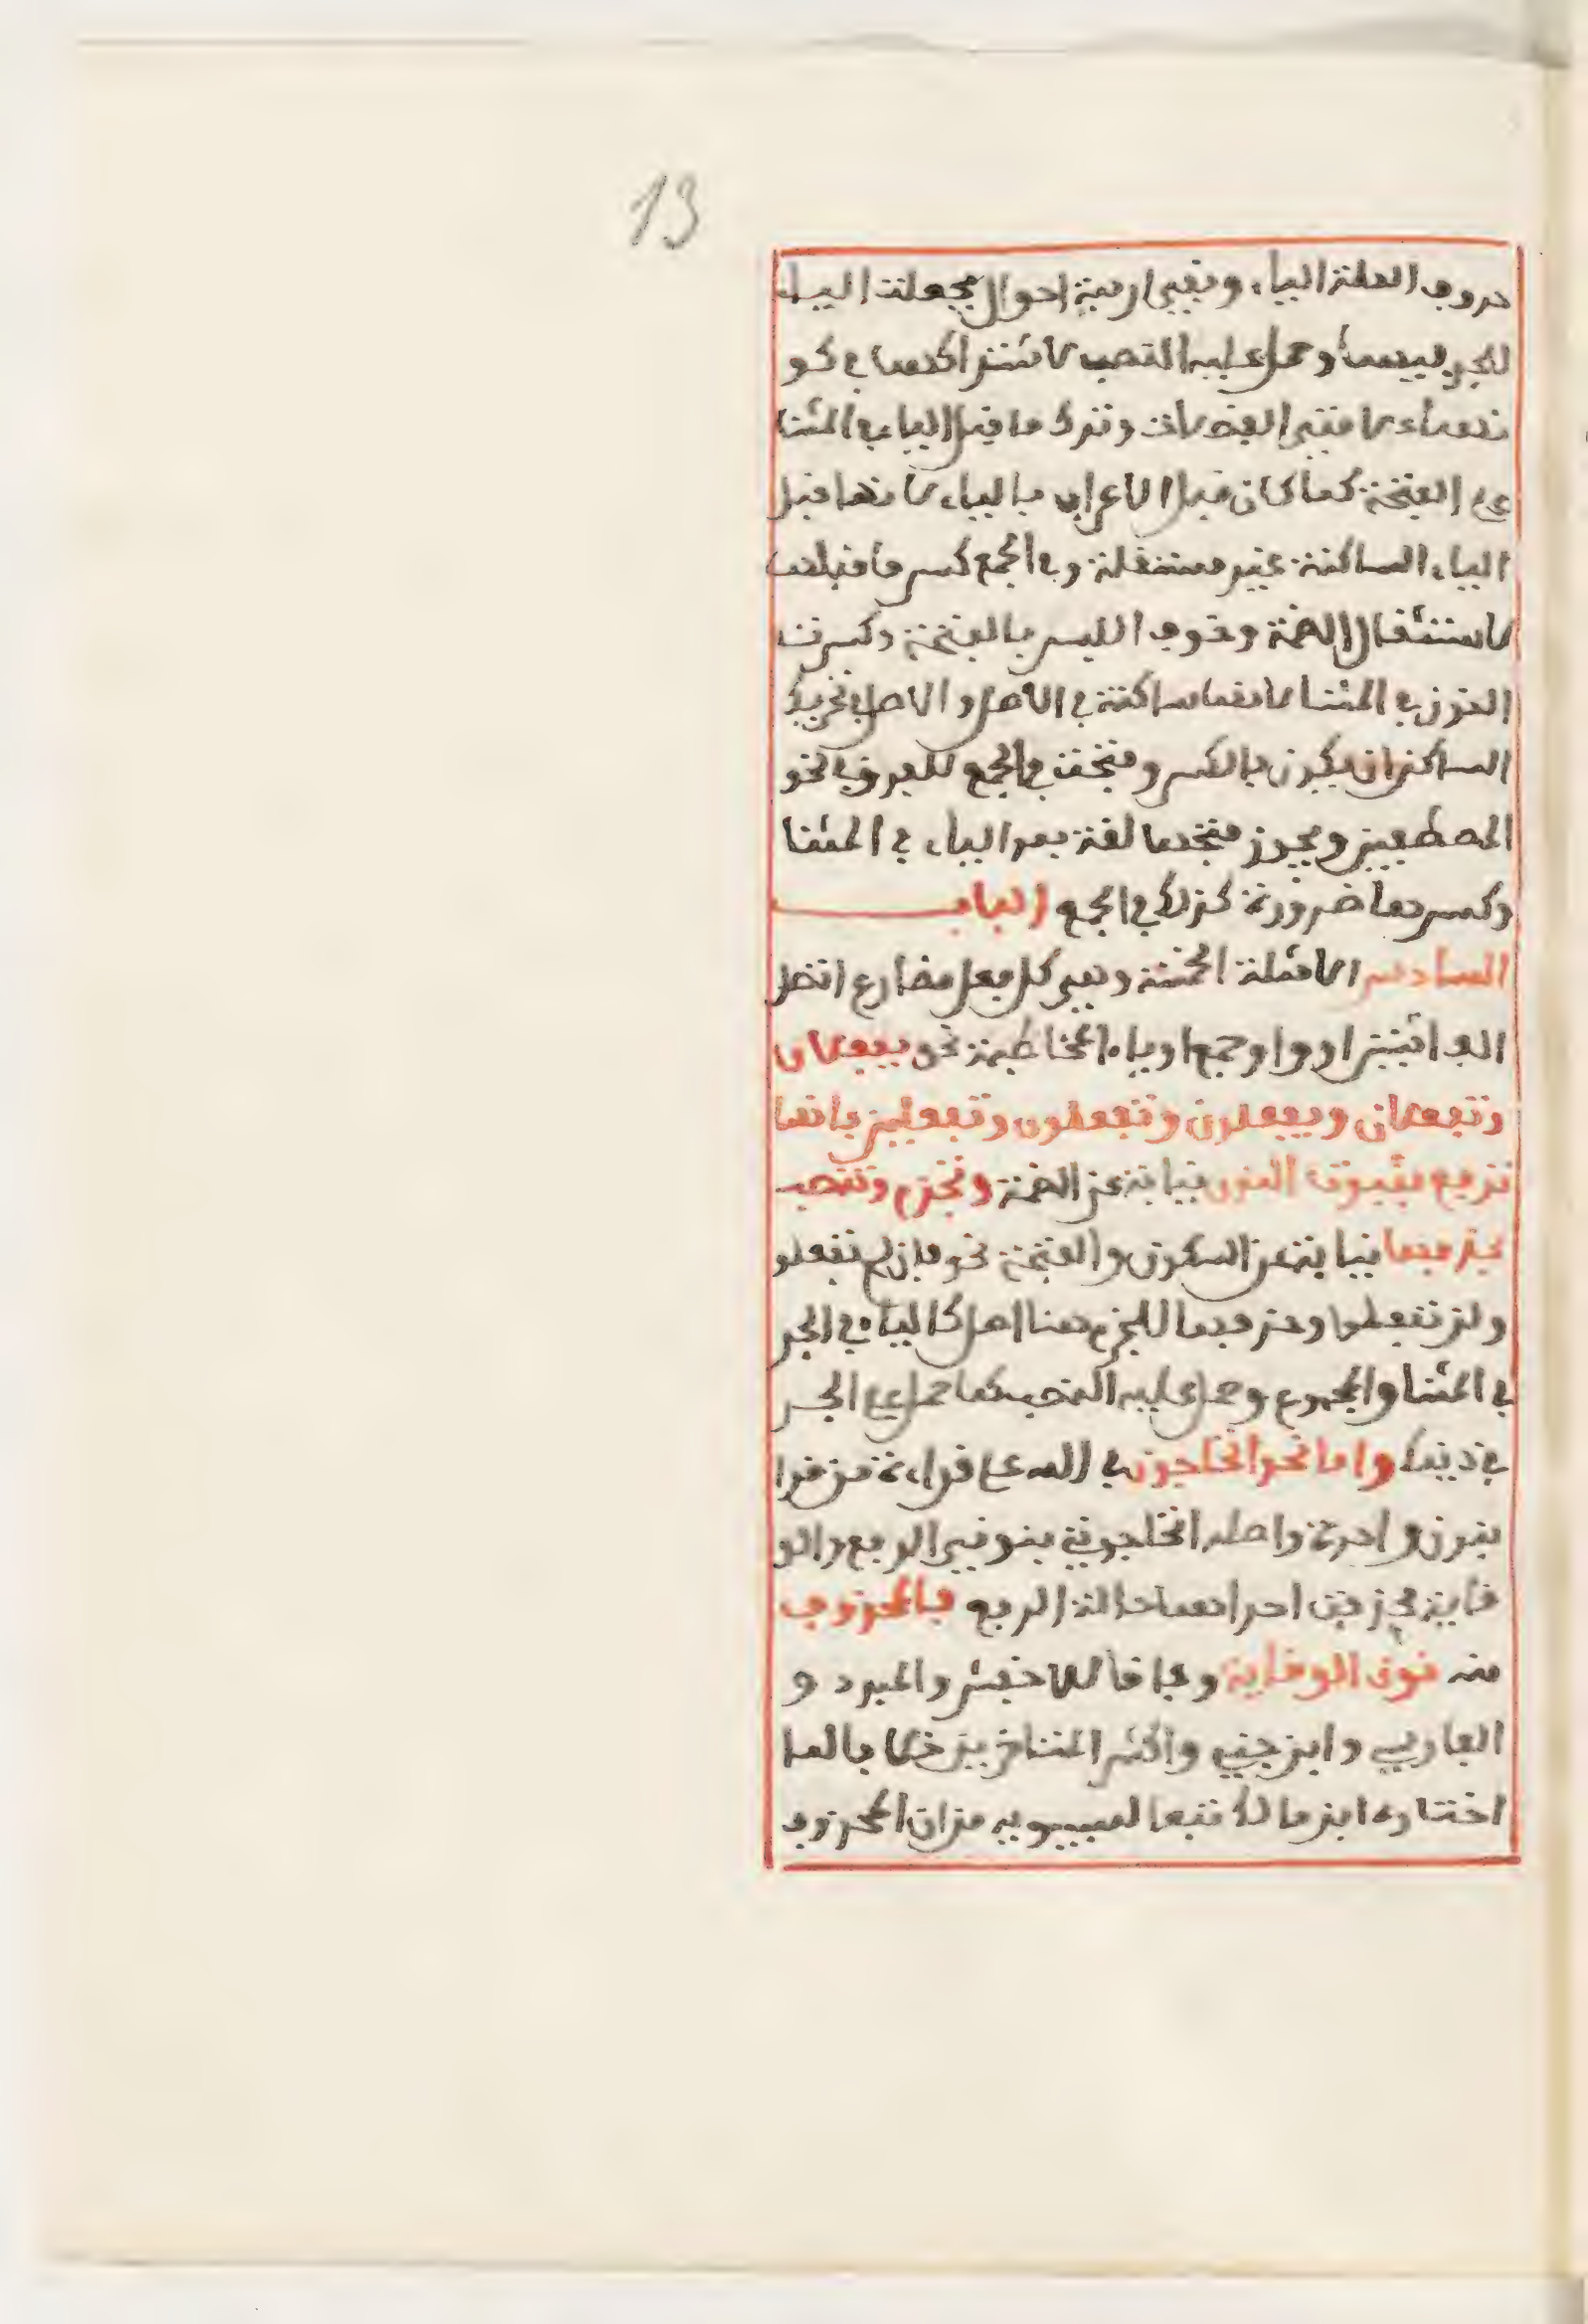 13
حروف العلة الياء وبقي اربعة احوال فجعلت الياء
للجر فيهما وحمل عليه النصب لاشتراكهما في كو
نهما علامتي الفضلات وترك ما قبل الياء في المثنا
على الفتحة كما كان قبل الاعراب بالياء لانها قبل
الياء الساكنة غير مستثقلة وفي الجمع كسر ما قبلها
لاستثقال الضمة وخوف اللبس بالفتحة وكسرت
النون في المثنا لانها ساكنة في الاصل والاصل في تحريك
الساكن ان يكون بالكسر وفتحت في الجمع للفرق في نحو
المصطفين ويجوز فتحها لغة بعد الياء في المثنا
وكسرها ضرورة كذلك في الجمع الباب
السادس الامثلة الخمسة وهي كل فعل مضارع اتصل
الف اثنين او واو جمع او ياء المخاطبة نحو يفعلان
وتفعلان ويفعلون وتفعلون وتفعلين فانها
ترفع بثبوت النون نيابة عن الضمة وتجزم وتنصب
بحذفها نيابة عن السكون والفتحة نحو فان لم تفعلو
ولن تفعلوا وحذفها للجزم هنا اصل كالياء في الجر
في المثنا والمجموع وحمل عليه النصب كما حمل على الجر
في ذينك واما نحو اتحاجون في الله على قراءة من قرا
بنون واحدة واصله اتحاجونني بنوني الرفع والو
قاية فحذفت احداهما حالة الرفع فالمحذوف
منه نون الوقاية وفاقا للاخفش والمبرد و
الفارسي وابن جني واكثر المتاخرين خلافا لما
اختاره ابن مالك تبعا لسيبويه من ان المحذوف